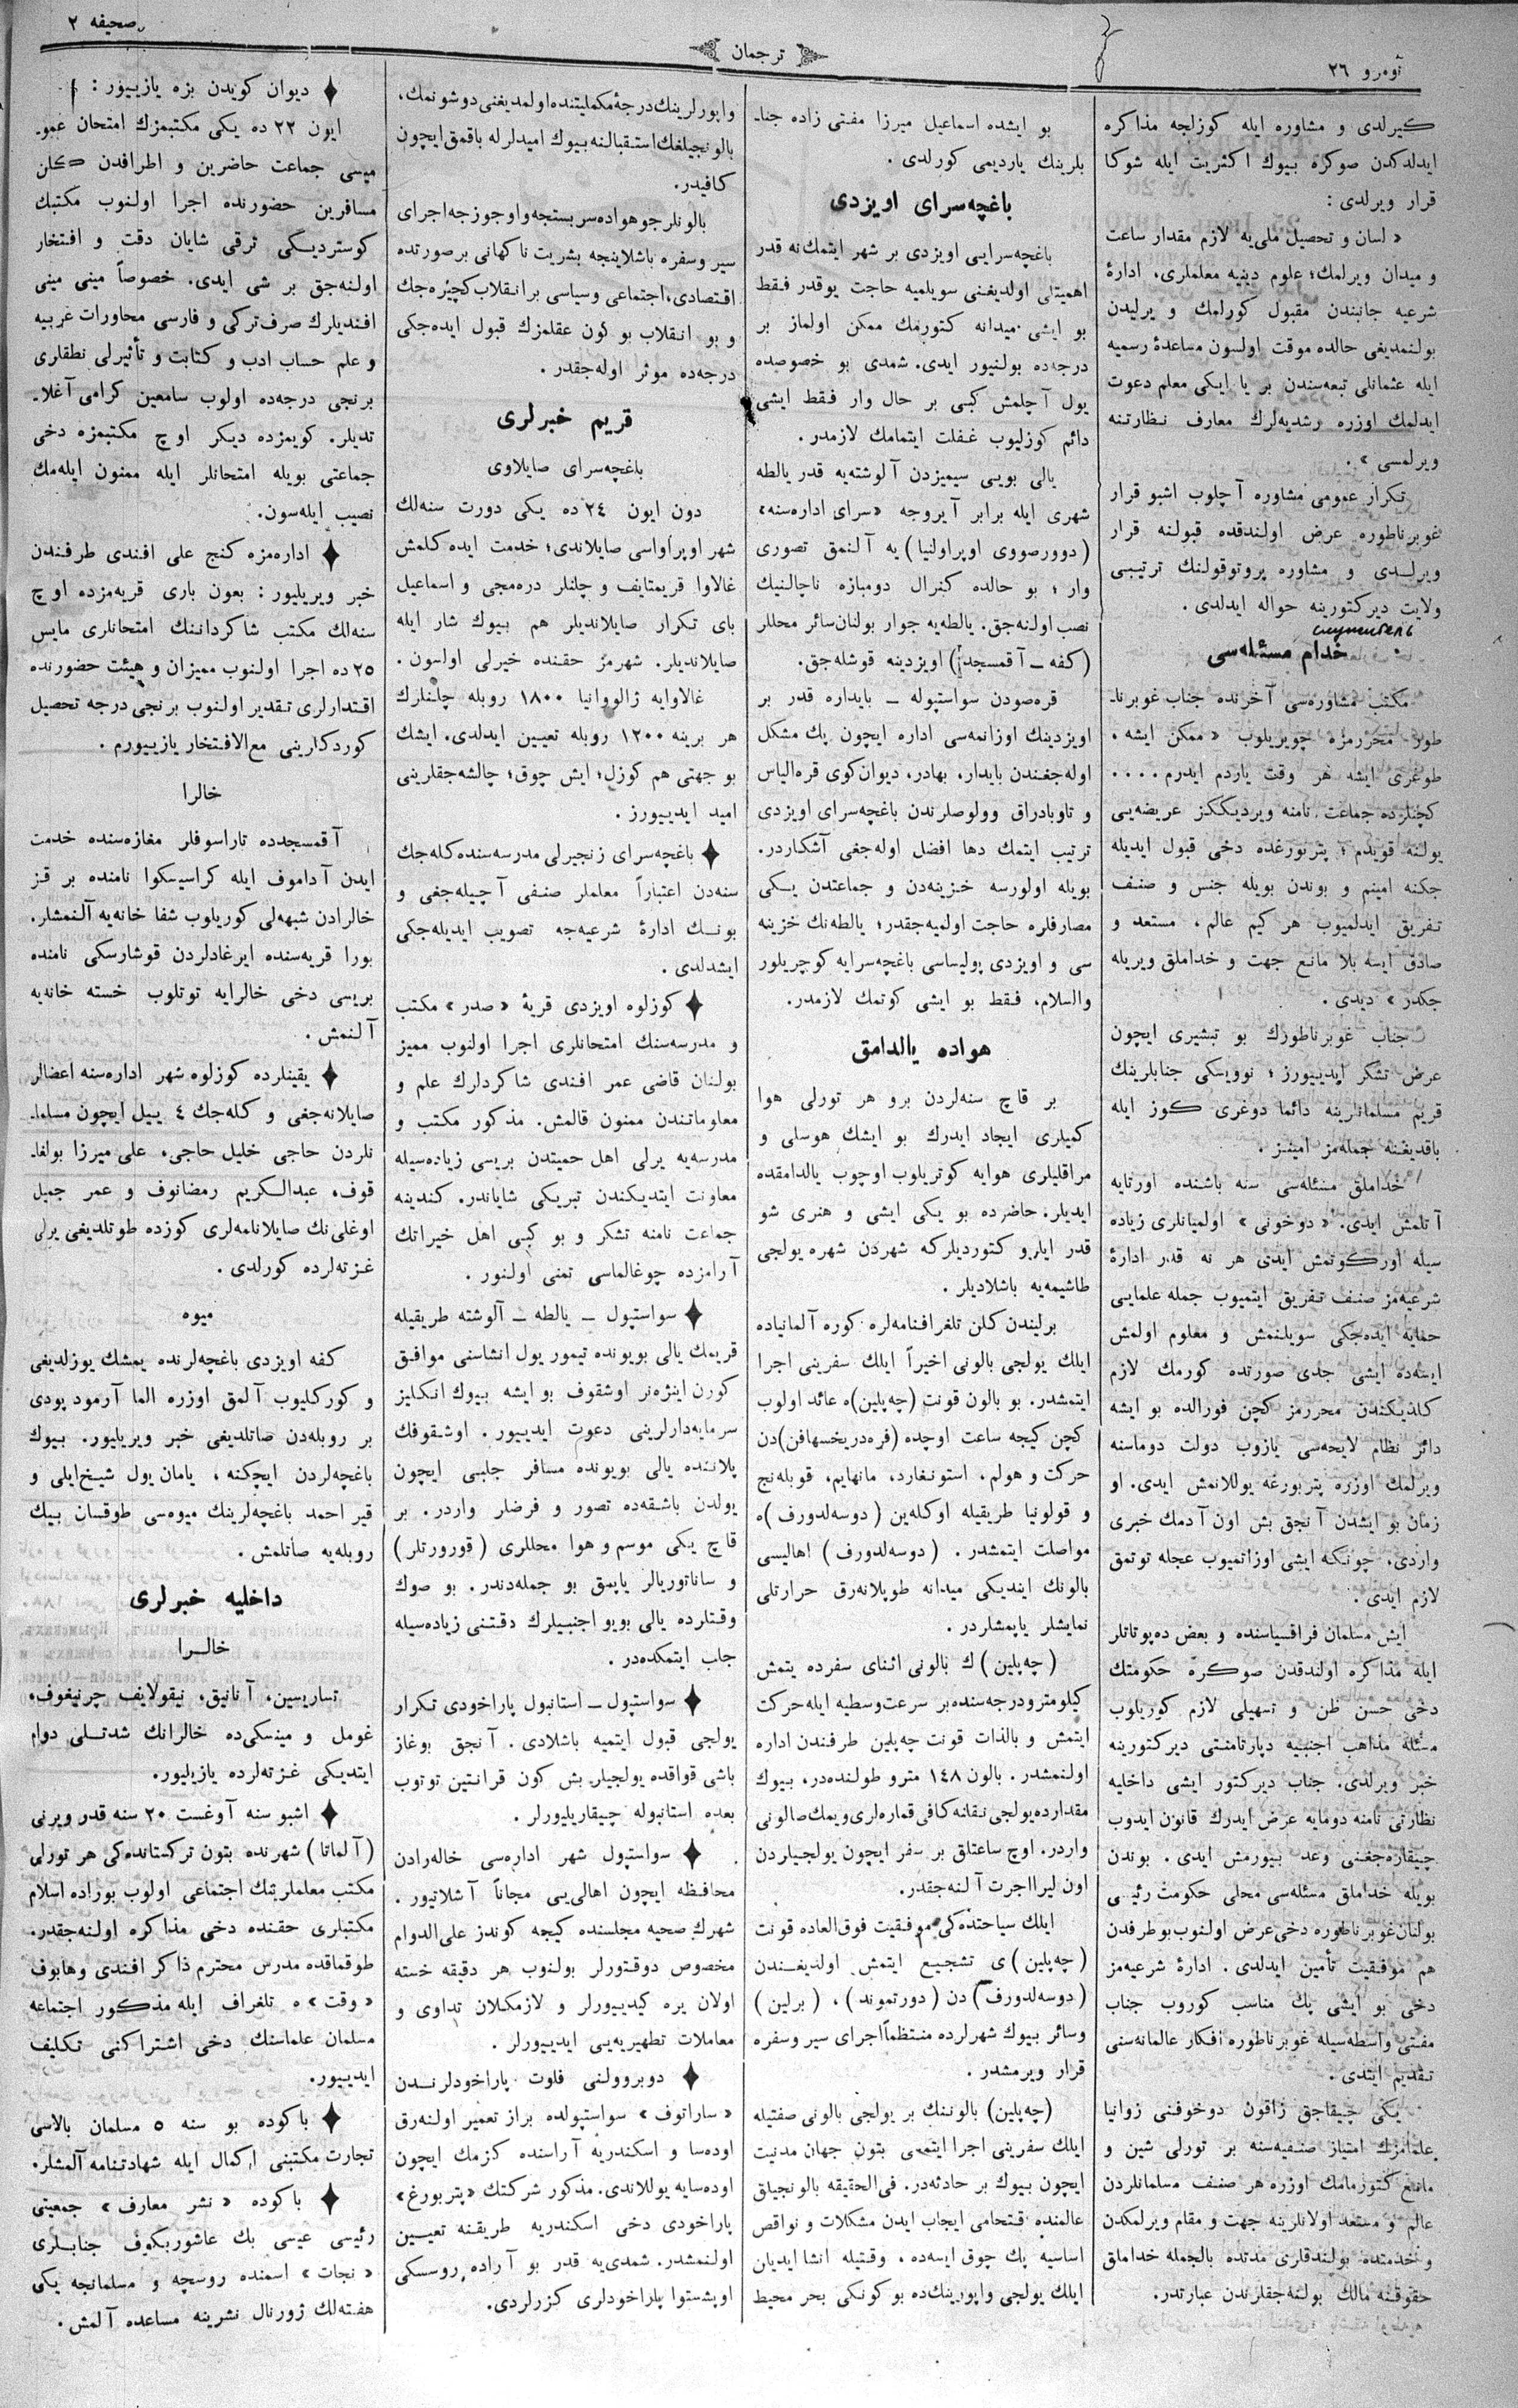 نومرو ٢٦
ترجمان
صحیفه ٢
کیرلدی و مشاوره ایله کوزلجه مذاکره
ایدلدکدن صوکره بیوك اکثریت ایله شوکا
قرار ویرلدی :
« لسان و تحصیل ملی‌یه لازم مقدار ساعت
و میدان ویرلمك؛ علوم دینیه معلملری، ادارهٔ
شرعیه جانبندن مقبول کورلمك و یرلیدن
بولنمدیغی حالده موقت اولسون مساعدهٔ رسمیه
ایله عثمانلی تبعه‌سندن بر یا ایکی معلم دعوت
ایدلمك اوزره رشدیه‌لرك معارف نظارتنه
ویرلمسی » .
تکرار عمومی مشاوره آچلوب اشبو قرار
غوبرناطوره عرض اولندقده قبولنه قرار
ویرلدی و مشاوره پروتوقولنك ترتیبی
ولایت دیرکتورینه حواله ایدلدی .
خدام مسئله‌سی
مکتب مشاوره‌سی آخرنده جناب غوبرنا-
طور محررمزه چویریلوب « ممکن ایشه ،
طوغری ایشه هر وقت یاردم ایدرم . . . .
کچنلرده جماعت نامنه ویردیککز عریضه‌یی
یولنه قویدم ؛ پتربورغده دخی قبول ایدیله
جکنه امینم و بوندن بویله جنس و صنف
تفریق ایدلمیوب هر کیم عالم ، مستعد و
صادق ایسه بلا مانع جهت و خداملق ویریله
جکدر » دیدی .
جناب غوبرناطورك بو تبشیری ایچون
عرض تشکر ایدییورز ؛ نوویسکی جنابلرینك
قریم مسلمانلرینه دائما دوغری کوز ایله
باقدیغنه جمله‌مز امینز .
خداملق مسئله‌سی سنه باشنده اورتایه
آتلمش ایدی. « دوخونی » اولمیانلری زیاده
سیله اورکوتمش ایدی هر نه قدر ادارهٔ
شرعیه‌مز صنف تفریق ایتمیوب جمله علمایی
حمایه ایده‌جکی سویلنمش و معلوم اولمش
ایسه‌ده ایشی جدی صورتده کورمك لازم
کلدیکندن محررمز کچن فورالده بو ایشه
دائر نظام لایحه‌سی یازوب دولت دوماسنه
ویرلمك اوزره پتربورغه یوللانمش ایدی. او
زمان بو ایشدن آنجق بش اون آدمك خبری
واردی، چونکه ایشی اوزاتمیوب عجله توتمق
لازم ایدی .
ایش مسلمان فراقسیاسنده و بعض ده‌پوتاتلر
ایله مذاکره اولندقدن صوکره حکومتك
دخی حسن ظن و تسهیلی لازم کوریلوب
مسئله مذاهب اجنبیه دپارتامنتی دیرکتورینه
خبر ویرلدی. جناب دیرکتور ایشی داخلیه
نظارتی نامنه دومایه عرض ایدرك قانون ایدوب
چیقاره‌جغنی وعد بیورمش ایدی . بوندن
بویله خداملق مسئله‌سی محلی حکومت رئیسی
بولنان غوبرناطوره دخی عرض اولنوب بو طرفدن
هم موفقیت تأمین ایدلدی . ادارهٔ شرعیه‌مز
دخی بو ایشی پك مناسب کوروب جناب
مفتی واسطه‌سیله غوبرناطوره افکار عالمانه‌سنی
تقدیم ایتدی .
یکی چیقاجق زاقون دوخوفنی زوانیا
علمامزك امتیاز صنفیه‌سنه بر تورلی شین و
مانع کتورمامك اوزره هر صنف مسلمانلردن
عالم و مستعد اولانلرینه جهت و مقام ویرلمکدن
و خدمتده بولندقلری مدتده بالجمله خداملق
حقوقنه مالك بولنه‌جقلرندن عبارتدر.
بو ایشده اسماعیل میرزا مفتی زاده جنا-
بلرینك یاردیمی کورلدی .
باغچه‌سرای اویزدی
باغچه‌سرایی اویزدی بر شهر ایتمك نه قدر
اهمیتلی اولدیغنی سویلمیه حاجت یوقدر فقط
بو ایشی میدانه کتورمك ممکن اولماز بر
درجه‌ده بولنیور ایدی. شمدی بو خصوصده
یول آچلمش کبی بر حال وار فقط ایشی
دائم کوزلیوب غفلت ایتمامك لازمدر.
یالی بویی سیمیزدن آلوشته‌یه قدر یالطه
شهری ایله برابر آیروجه « سرای اداره‌سنه »
(دوورصووی اوپراولنیا) یه آلنمق تصوری
وار ؛ بو حالده کنرال دومبازه ناچالنیك
نصب اولنه‌جق. یالطه‌یه جوار بولنان سائر محللر
(کفه – آقمسجد) اویزدینه قوشله‌جق.
قره‌صودن سواستپوله – بایداره قدر بر
اویزدینك اوزانمه‌سی اداره ایچون پك مشکل
اوله‌جغندن بایدار، بهادر، دیوان‌کوی قره‌الیاس
و تاوبادراق وولوصلرندن باغچه‌سرای اویزدی
ترتیب ایتمك دها افضل اوله‌جغی آشکاردر.
بویله اولورسه خزینه‌دن و جماعتدن یکی
مصارفلره حاجت اولمیه‌جقدر؛ یالطه‌نك خزینه
سی و اویزدی پولیساسی باغچه‌سرایه کوچریلور
والسلام، فقط بو ایشی کوتمك لازمدر.
هواده یالدامق
بر قاچ سنه‌لردن برو هر تورلی هوا
کمیلری ایجاد ایدرك بو ایشك هوسلی و
مراقلیلری هوایه کوتریلوب اوچوب یالدامقده
ایدیلر. حاضرده بو یکی ایشی و هنری شو
قدر ایلرو کتوردیلرکه شهردن شهره یولجی
طاشیمه‌یه باشلادیلر .
برلیندن کلن تلغرافنامه‌لره کوره آلمانیاده
ایلك یولجی بالونی اخیراً ایلك سفرینی اجرا
ایتمشدر. بو بالون قونت (چه‌پلین)ه عائد اولوب
کچن کیجه ساعت اوچده (فره‌دریخسهافن)دن
حرکت و هولم، استوتغارد، مانهایم، قوبله‌نج
و قولونیا طریقیله اوکله‌ین (دوسه‌لدورف)ه
مواصلت ایتمشدر . (دوسه‌لدورف) اهالیسی
بالونك ایندیکی میدانه طوپلانه‌رق حرارتلی
نمایشلر یاپمشلردر .
(چه‌پلین) ك بالونی اثنای سفرده یتمش
کیلومترو درجه‌سنده بر سرعت وسطیه ایله حرکت
ایتمش و بالذات قونت چه‌پلین طرفندن اداره
اولنمشدر . بالون ١٤٨ مترو طولنده‌در، بیوك
مقدارده یولجی نقلنه کافی قماره‌لری و یمك صالونی
واردر. اوچ ساعتلق بر سفر ایچون یولجیلردن
اون لیرا اجرت آلنه‌جقدر.
ایلك سیاحتده‌کی موفقیت فوق العاده قونت
(چه‌پلین) ی تشجیع ایتمش اولدیغندن
(دوسه‌لدورف) دن (دورتموند) ، (برلین)
وسائر بیوك شهرلرده منتظماً اجرای سیر وسفره
قرار ویرمشدر .
(چه‌پلین) بالوننك بر یولجی بالونی صفتیله
ایلك سفرینی اجرا ایتمسی بتون جهان مدنیت
ایچون بیوك بر حادثه‌در. فی‌الحقیقه بالونجیلق
عالمنده قتحامی ایجاب ایدن مشکلات و نواقص
اساسیه پك چوق ایسه‌ده ، وقتیله انشا ایدیان
ایلك یولجی واپورینك‌ده بو کونکی بحر محیط
واپورلرینك درجهٔ مکملیتنده اولمدیغنی دوشونمك،
بالونجیلغك استقبالنه بیوك امیدلرله باقمق ایچون
کافیدر.
بالونلر جو هواده سربستجه و اوجوزجه اجرای
سیر و سفره باشلاینجه بشریت ناکهانی بر صورتده
اقتصادی، اجتماعی و سیاسی بر انقلاب کچیره‌جك
و بو انقلاب بو کون عقلمزك قبول ایده‌جکی
درجه‌ده موثر اوله‌جقدر .
قریم خبرلری
باغچه‌سرای صایلاوی
دون ایون ٢٤ ده یکی دورت سنه‌لك
شهر اوپراواسی صایلاندی؛ خدمت ایده کلمش
غالاوا قریمتایف و چلنلر دره‌مجی و اسماعیل
بای تکرار صایلاندیلر هم بیوك شار ایله
صایلاندیلر. شهرمز حقنده خیرلی اولسون .
غالاوایه ژالووانیا ١٨٠٠ روبله چلنلرك
هر برینه ١٢٠٠ روبله تعیین ایدلدی. ایشك
بو جهتی هم کوزل؛ ایش چوق؛ چالشه‌جقلرینی
امید ایدییورز .
باغچه‌سرای زنجیرلی مدرسه‌سنده کله‌جك
سنه‌دن اعتباراً معلملر صنفی آچیله‌جغی و
بونك ادارهٔ شرعیه‌جه تصویب ایدیله‌جکی
ایشدلدی .
کوزلوه اویزدی قریهٔ « صدر » مکتب
و مدرسه‌سنك امتحانلری اجرا اولنوب ممیز
بولنان قاضی عمر افندی شاکردلرك علم و
معلوماتندن ممنون قالمش. مذکور مکتب و
مدرسه‌یه یرلی اهل حمیتدن بریسی زیاده‌سیله
معاونت ایتدیکندن تبریکی شایاندر. کندینه
جماعت نامنه تشکر و بو کبی اهل خیراتك
آرامزده چوغالماسی تمنی اولنور .
سواستپول – یالطه – آلوشته طریقیله
قریمك یالی بویونده تیمور یول انشاسنی موافق
کورن اینژه‌نر اوشقوف بو ایشه بیوك انکلیز
سرمایه‌دارلرینی دعوت ایدییور . اوشقوفك
پلاننده یالی بویونده مسافر جلبی ایچون
یولدن باشقه‌ده تصور و فرضلر واردر. بر
قاچ یکی موسم و هوا محللری (قورورتلر)
و ساناتوریالر یاپمق بو جمله‌دندر. بو صوك
وقتلرده یالی بویو اجنبیلرك دقتنی زیاده‌سیله
جلب ایتمکده‌در .
سواستپول – استانبول پاراخودی تکرار
یولجی قبول ایتمیه باشلادی . آنجق بوغاز
باشی قواقده یولجیلر بش کون قرانتین توتوب
بعده استانبوله چیقاریلیورلر .
سواستپول شهر اداره‌سی خاله‌رادن
محافظه ایچون اهالی‌یی مجاناً آشلاتیور .
شهرك صحیه مجلسنده کیجه کوندز علی‌الدوام
مخصوص دوقتورلر بولنوب هر دقیقه خسته
اولان یره کیدییورلر و لازمکلان تداوی و
معاملات تطهیریه‌یی ایدییورلر .
دوبروولنی فلوت پاراخودلرندن
« ساراتوف » سواستپولده براز تعمیر اولنه‌رق
اوده‌سا و اسکندریه آراسنده کزمك ایچون
اوده‌سایه یوللاندی. مذکور شرکتك « پتربورغ »
پاراخودی دخی اسکندریه طریقنه تعیین
اولنمشدر. شمدی‌یه قدر بو آراده روسسکی
اوبشستوا پاراخودلری کزرلردی.
دیوان کویدن بزه یازییور :
ایون ٢٢ ده یکی مکتبمزك امتحان عمو-
میسی جماعت حاضرین و اطرافدن کلن
مسافرین حضورنده اجرا اولنوب مکتبك
کوستردیکی ترقی شایان دقت و افتخار
اولنه‌جق بر شی ایدی. خصوصاً مینی مینی
افندیلرك صرف ترکی و فارسی محاورات عربیه
و علم حساب ادب و کتابت و تأثیرلی نطقلری
برنجی درجه‌ده اولوب سامعین کرامی آغلا-
تدیلر. کویمزده دیکر اوچ مکتبمزه دخی
جماعتی بویله امتحانلر ایله ممنون ایله‌مك
نصیب ایله‌سون.
اداره‌مزه کنج علی افندی طرفندن
خبر ویریلیور : بعون باری قریه‌مزده اوچ
سنه‌لك مکتب شاکرداننك امتحانلری مایس
٢٥ ده اجرا اولنوب ممیزان و هیئت حضورنده
اقتدارلری تقدیر اولنوب برنجی درجه تحصیل
کوردکلرینی مع‌الافتخار یازییورم .
خالرا
آقمسجدده تاراسوفلر مغازه‌سنده خدمت
ایدن آداموف ایله کراسیسکوا نامنده بر قز
خالرادن شبهه‌لی کوریلوب شفا خانه‌یه آلنمشلر.
بورا قریه‌سنده ایرغادلردن قوشارسکی نامنده
بریسی دخی خالرایه توتلوب خسته خانه‌یه
آلنمش .
یقینلرده کوزلوه شهر اداره‌سنه اعضالر
صایلانه‌جغی و کله‌جك ٤ ییل ایچون مسلما-
نلردن حاجی خلیل حاجی، علی میرزا بولغا-
قوف، عبدالکریم رمضانوف و عمر جمیل
اوغلی‌نك صایلانامه‌لری کوزده طوتلدیغی یرلی
غزته‌لرده کورلدی .
میوه
کفه اویزدی باغچه‌لرنده یمشك یوزلدیغی
و کورکلیوب آلمق اوزره الما آرمود پودی
بر روبله‌دن صاتلدیغی خبر ویریلیور. بیوك
باغچه‌لردن ایچکنه ، یامان یول شیخ‌ایلی و
قیر احمد باغچه‌لرینك میوه‌سی طوقسان بیك
روبله‌یه صاتلمش .
داخلیه خبرلری
خالرا
تساریسین، آنانیق، نیقولایف چرنیغوف،
غومل و مینسکی‌ده خالرانك شدتلی دوام
ایتدیکی غزته‌لرده یازیلیور.
اشبو سنه آوغست ٢٠ سنه قدر ویرنی
(آلماتا) شهرنده بتون ترکستانده‌کی هر تورلی
مکتب معلملرینك اجتماعی اولوب بوراده اسلام
مکتبلری حقنده دخی مذاکره اولنه‌جقدر.
طوقماقده مدرس محترم ذاکر افندی وهابوف
« وقت » ه تلغراف ایله مذکور اجتماعه
مسلمان علماسنك دخی اشتراکنی تکلیف
ایدییور.
باکوده بو سنه ٥ مسلمان بالاسی
تجارت مکتبنی اکمال ایله شهادتنامه آلمشلر.
باکوده « نشر معارف » جمعیتی
رئیسی عیسی بك عاشوربکوف جنابلری
« نجات » اسمنده روسچه و مسلمانجه یکی
هفته‌لك ژورنال نشرینه مساعده آلمش .